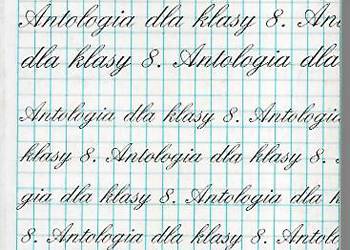 Antologia dla klasy 8. An
dla klasy 8. Antologia dla
Antologia dla klasy 8. Antologia
klasy 8. Antologia dla klasy 8.
gia dla klasy 8. Antologia dla k
8. Antologia dla klasy 8. Antolo